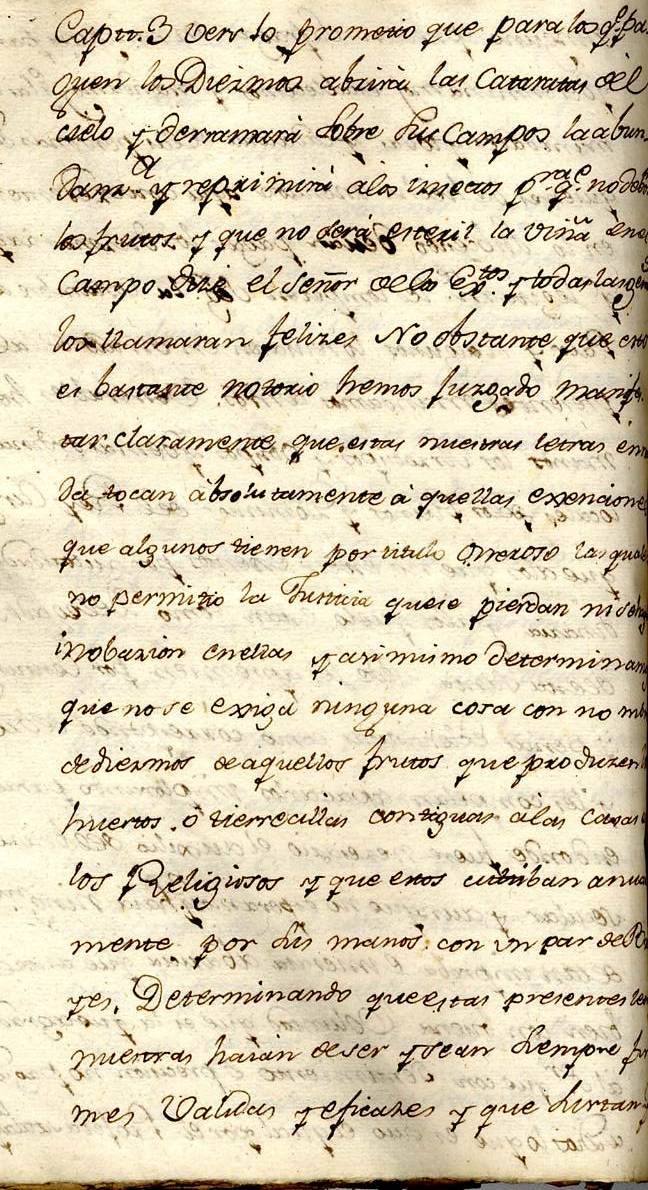 Capit. 3 vers 10 prometio que para los q.e pa-
guen los Diezmos abrirà las Cataratas del
cielo y derramarà sobre sus Campos la abun-
danz.a y reprimirà a los insectos p.ra q.e no
los frutos y que no serà esteril la viña en el
Campo dize el Señor de los Ex.tos y todas las
los llamaran felizes No obstante que esto
es bastante notorio hemos juzgado manifes-
tar claramente que estas nuestras letras en
da tocan absolutamente à quellas exenciones
que algunos tienen por titulo Oneroso las quales
no permitio la Justicia que se pierdan ni se
inobazion en ellas y asi mismo determinamos
que no se exiga ninguna cosa con nombre
de diezmos de aquellos frutos que produzen
huertos o tierrecillas contiguas a las casas
los Religiosos y que estos cultiban anual
mente por sus manos con un par de Bu
yes. Determinando que estas presentes letras
nuestras haian de ser y sean siempre fir
mes Validas y eficazes y que surtan